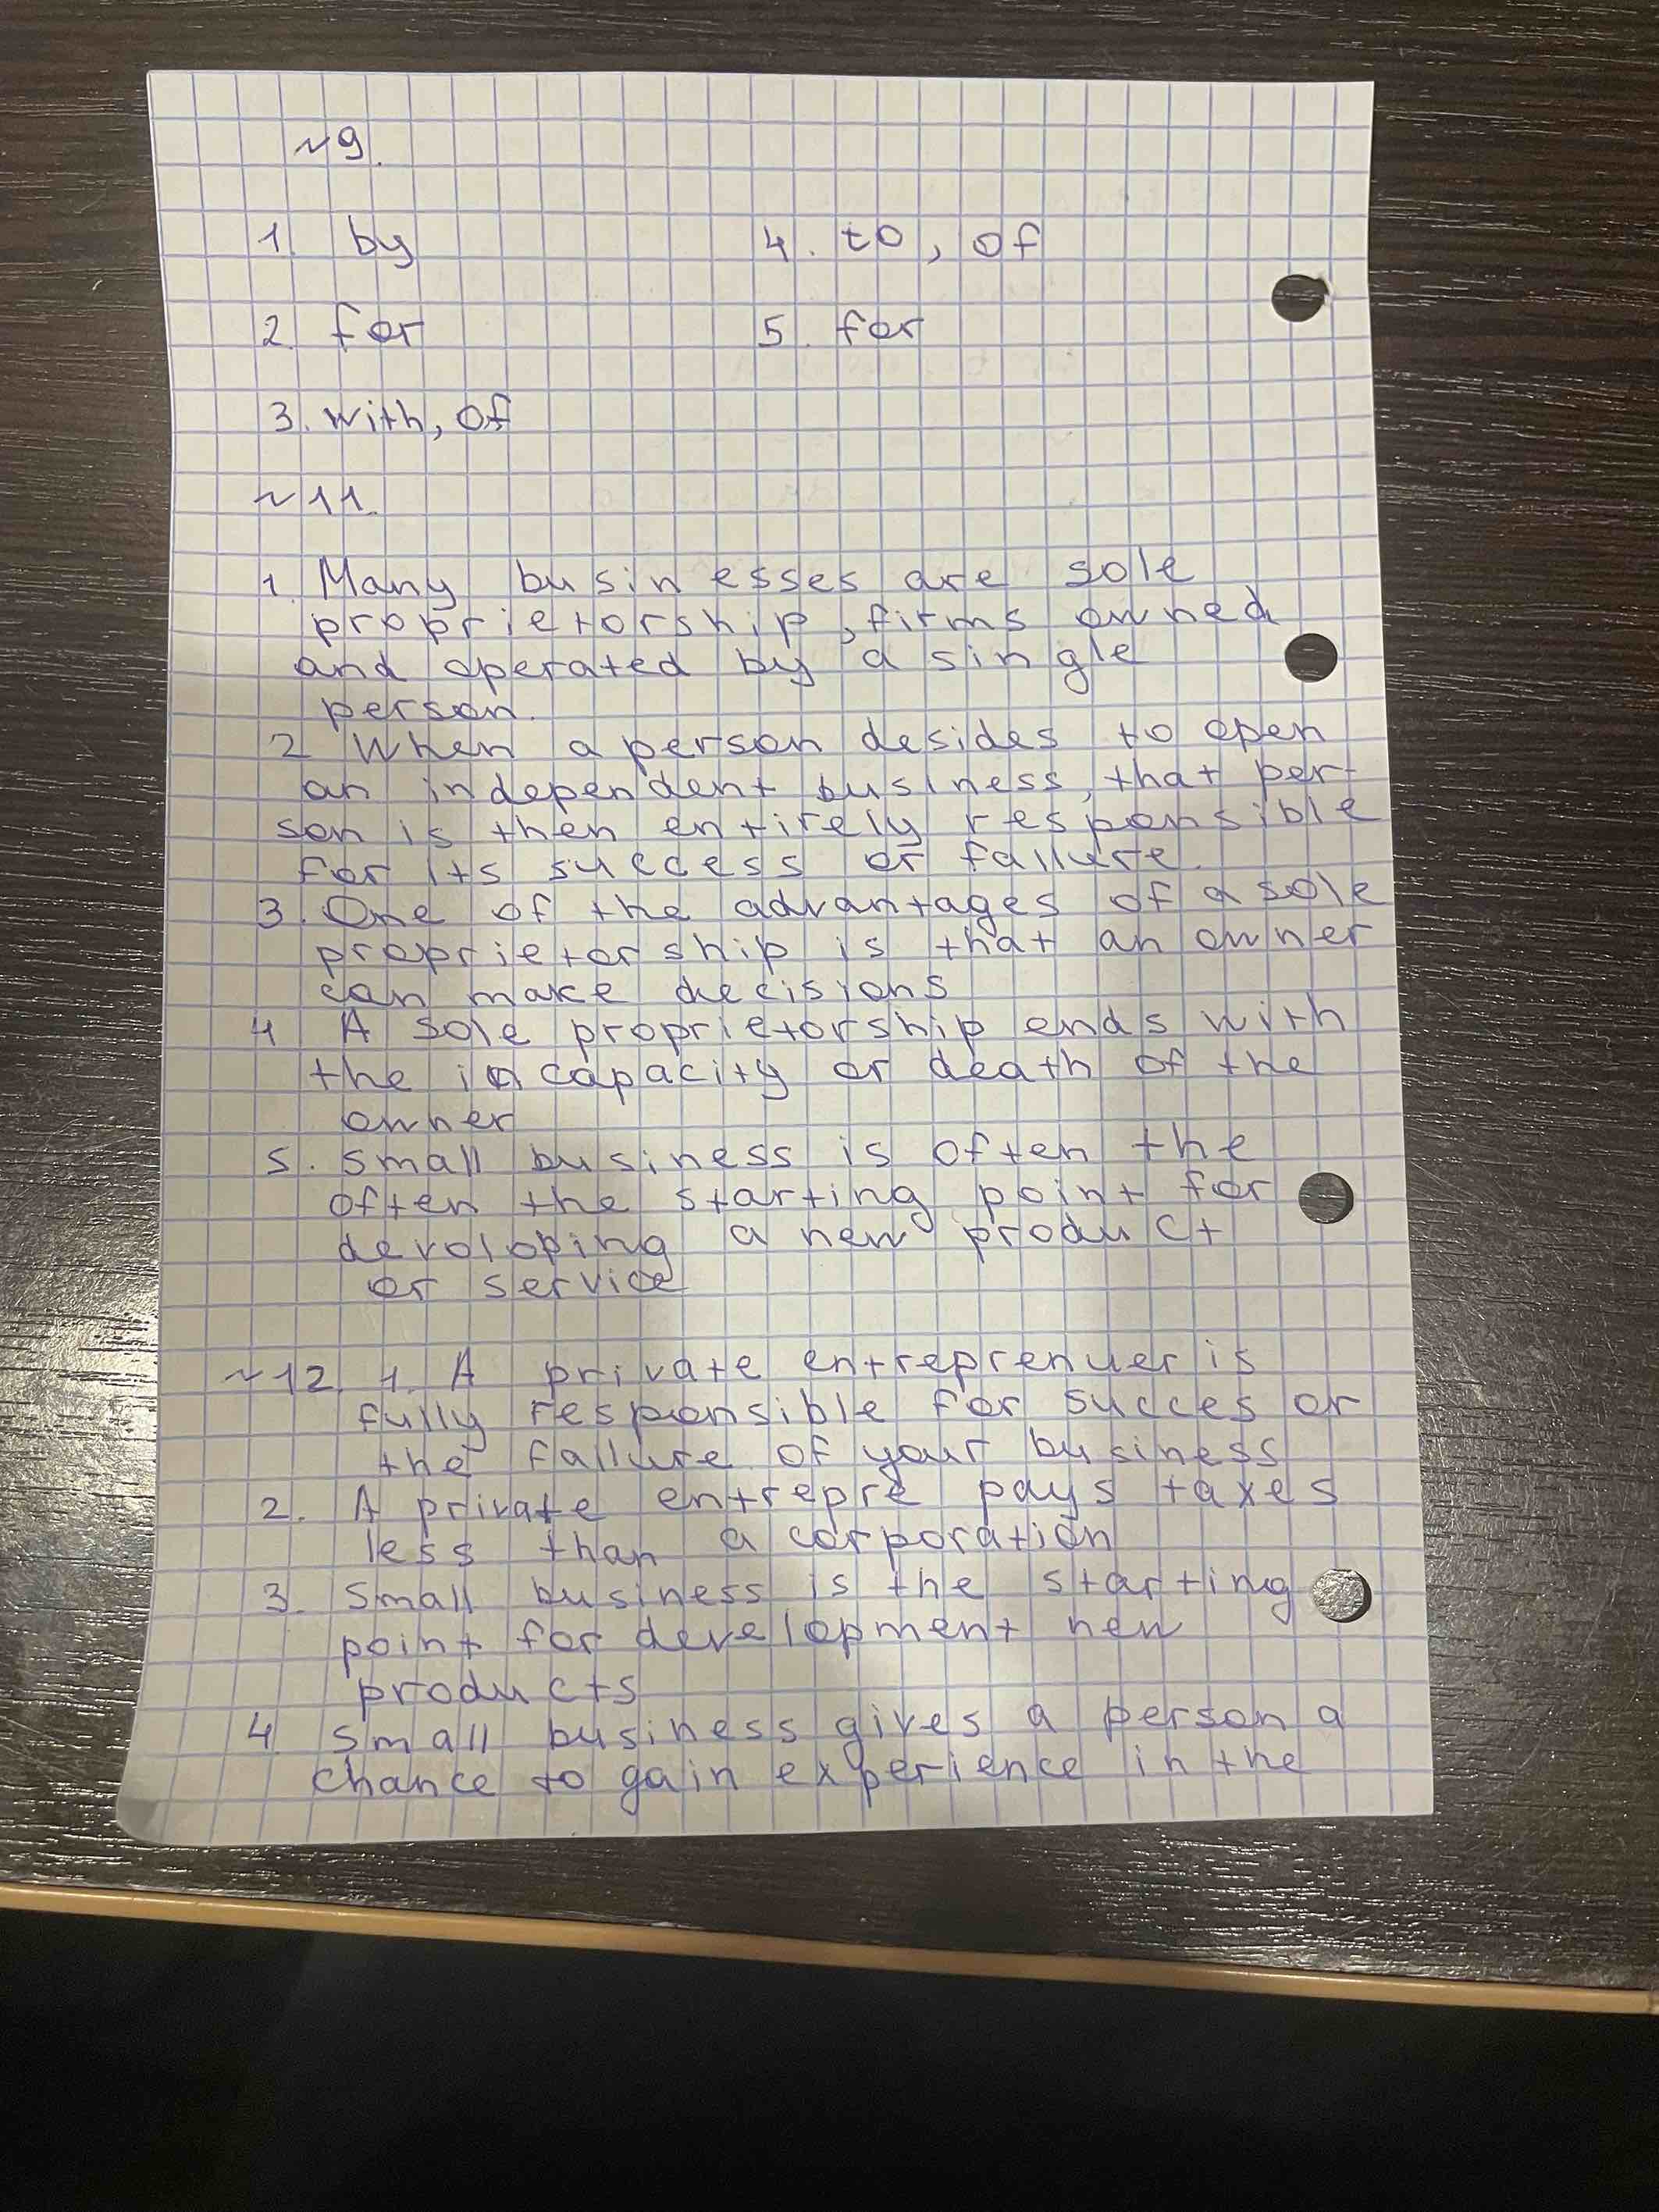 ~9.
1. by
4. to, of
2. for
5. for
3. with, of
~11.
1. Many businesses are sole
proprietorship, firms owned
and operated by a single
person.
2 When a person desides to open
an independent business, that per-
son is then entirely responsible
for its success or failure.
3. One of the advantages of a sole
proprietorship is that an owner
can make decisions
4 A sole proprietorship ends with
the incapacity or death of the
owner
5. Small business is often the
often the starting point for
devoloping a new product
or service
~12. 1. A private entreprenuer is
fully responsible for succes or
the failure of your business
2. A private entrepre pays taxes
less than a corporation
3. Small business is the starting
point for development new
products
4 Small business gives a person a
chance to gain experience in the